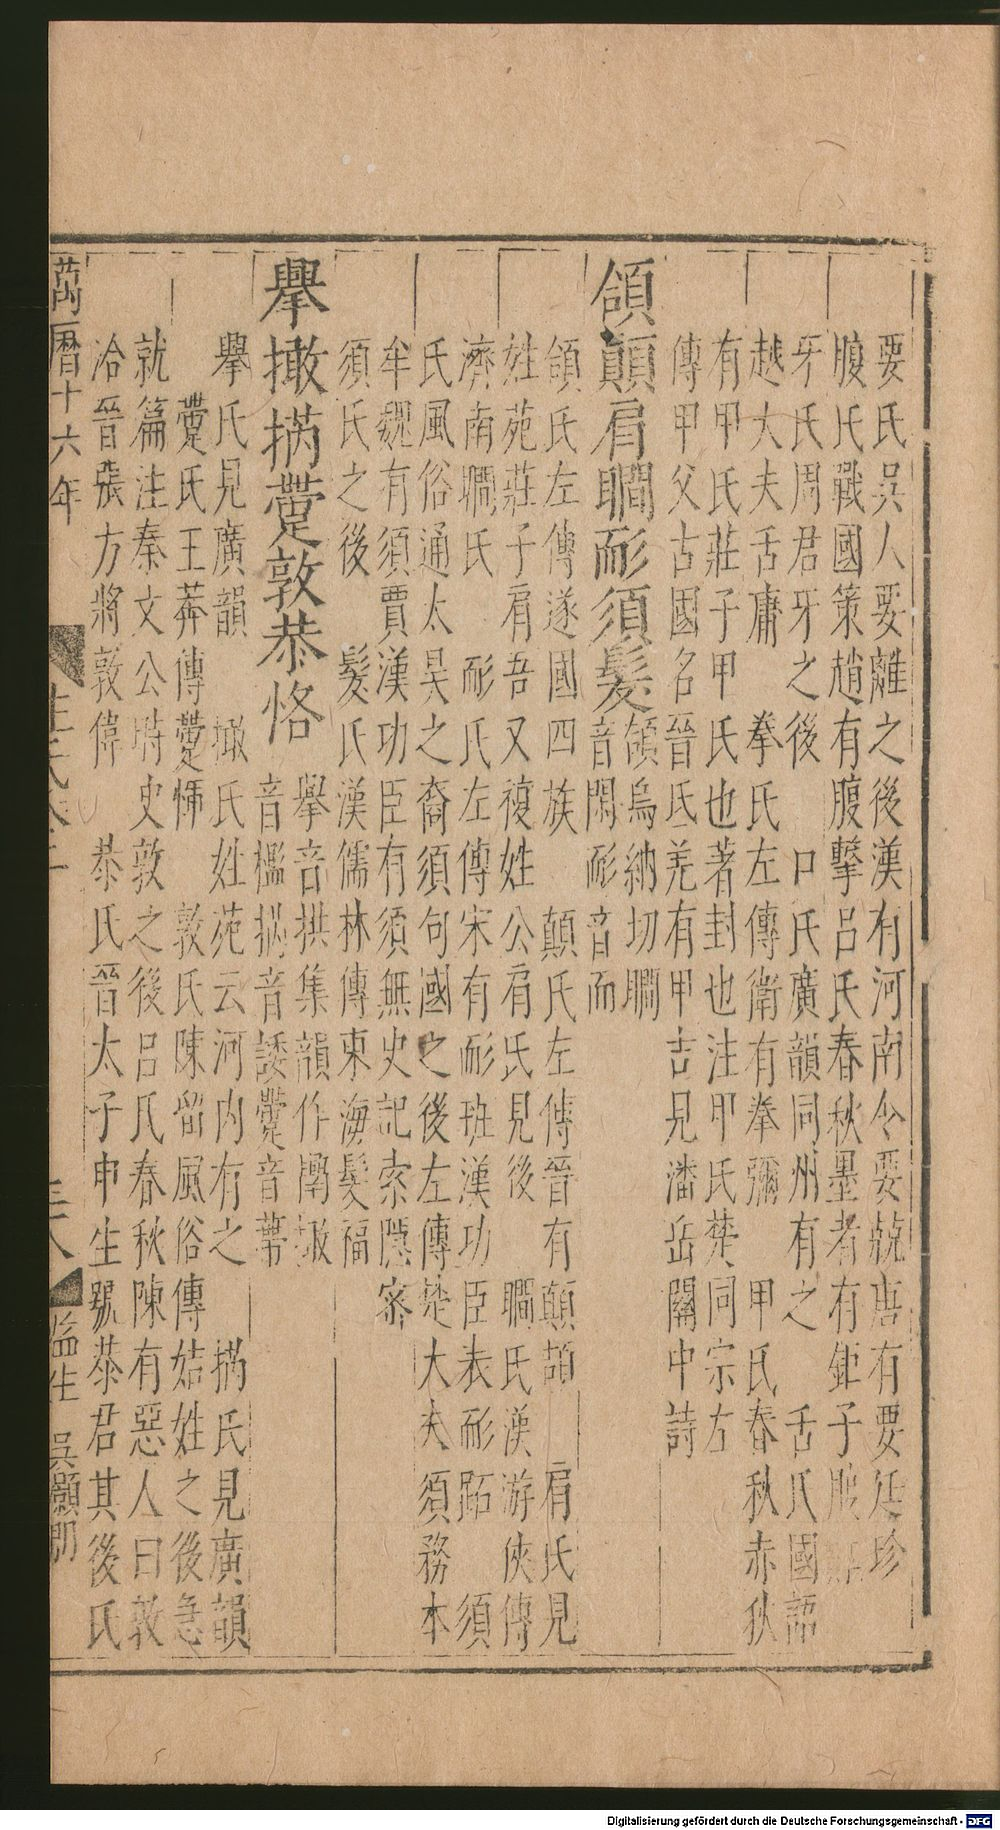 要氏吳人要離之後漢有河南令要兢唐有要廷珍
腹氏戰國策趙有腹擊呂氏春秋墨者有鉅子腹
牙氏周君牙之後 口氏廣韻同州有之 舌氏國語
越大夫舌庸 拳氏左傳衛有拳彌 甲氏春秋赤狄
有甲氏莊子甲氏也著封也注甲氏楚同宗左
傳甲父古國名晉氏羌有甲吉見潘岳關中詩
頜顛肩瞯耏須髮
頜烏納切瞯
音閑耏音而
頜氏左傳遂國四族 顛氏左傳晉有顛頡 肩氏見
姓苑莊子肩吾又複姓公肩氏見後 瞯氏漢游俠傳
濟南瞯氏 耏氏左傳宋有耏班漢功臣表耏跖 須
氏風俗通太昊之裔須句國之後左傳楚大夫須務本
牟魏有須賈漢功臣有須無史記索隱密
須氏之後 髮氏漢儒林傳東海髮福
擧撖撝疐敦恭恪
擧音拱集韻作闀撖
音檻撝音諉疐音
擧氏見廣韻 撖氏姓苑云河内有之 撝氏見廣韻
疐氏王莽傳疐怫 敦氏陳留風俗傳姞姓之後急
就篇注秦文公時史敦之後呂氏春秋陳有惡人曰敦
洽晉張方將敦偉 恭氏晉太子申生號恭君其後氏
萬曆十六年
姓氏 三八
監生 吳顥郡
Digitalisierung gefördert durch die Deutsche Forschungsgemeinschaft - DFG